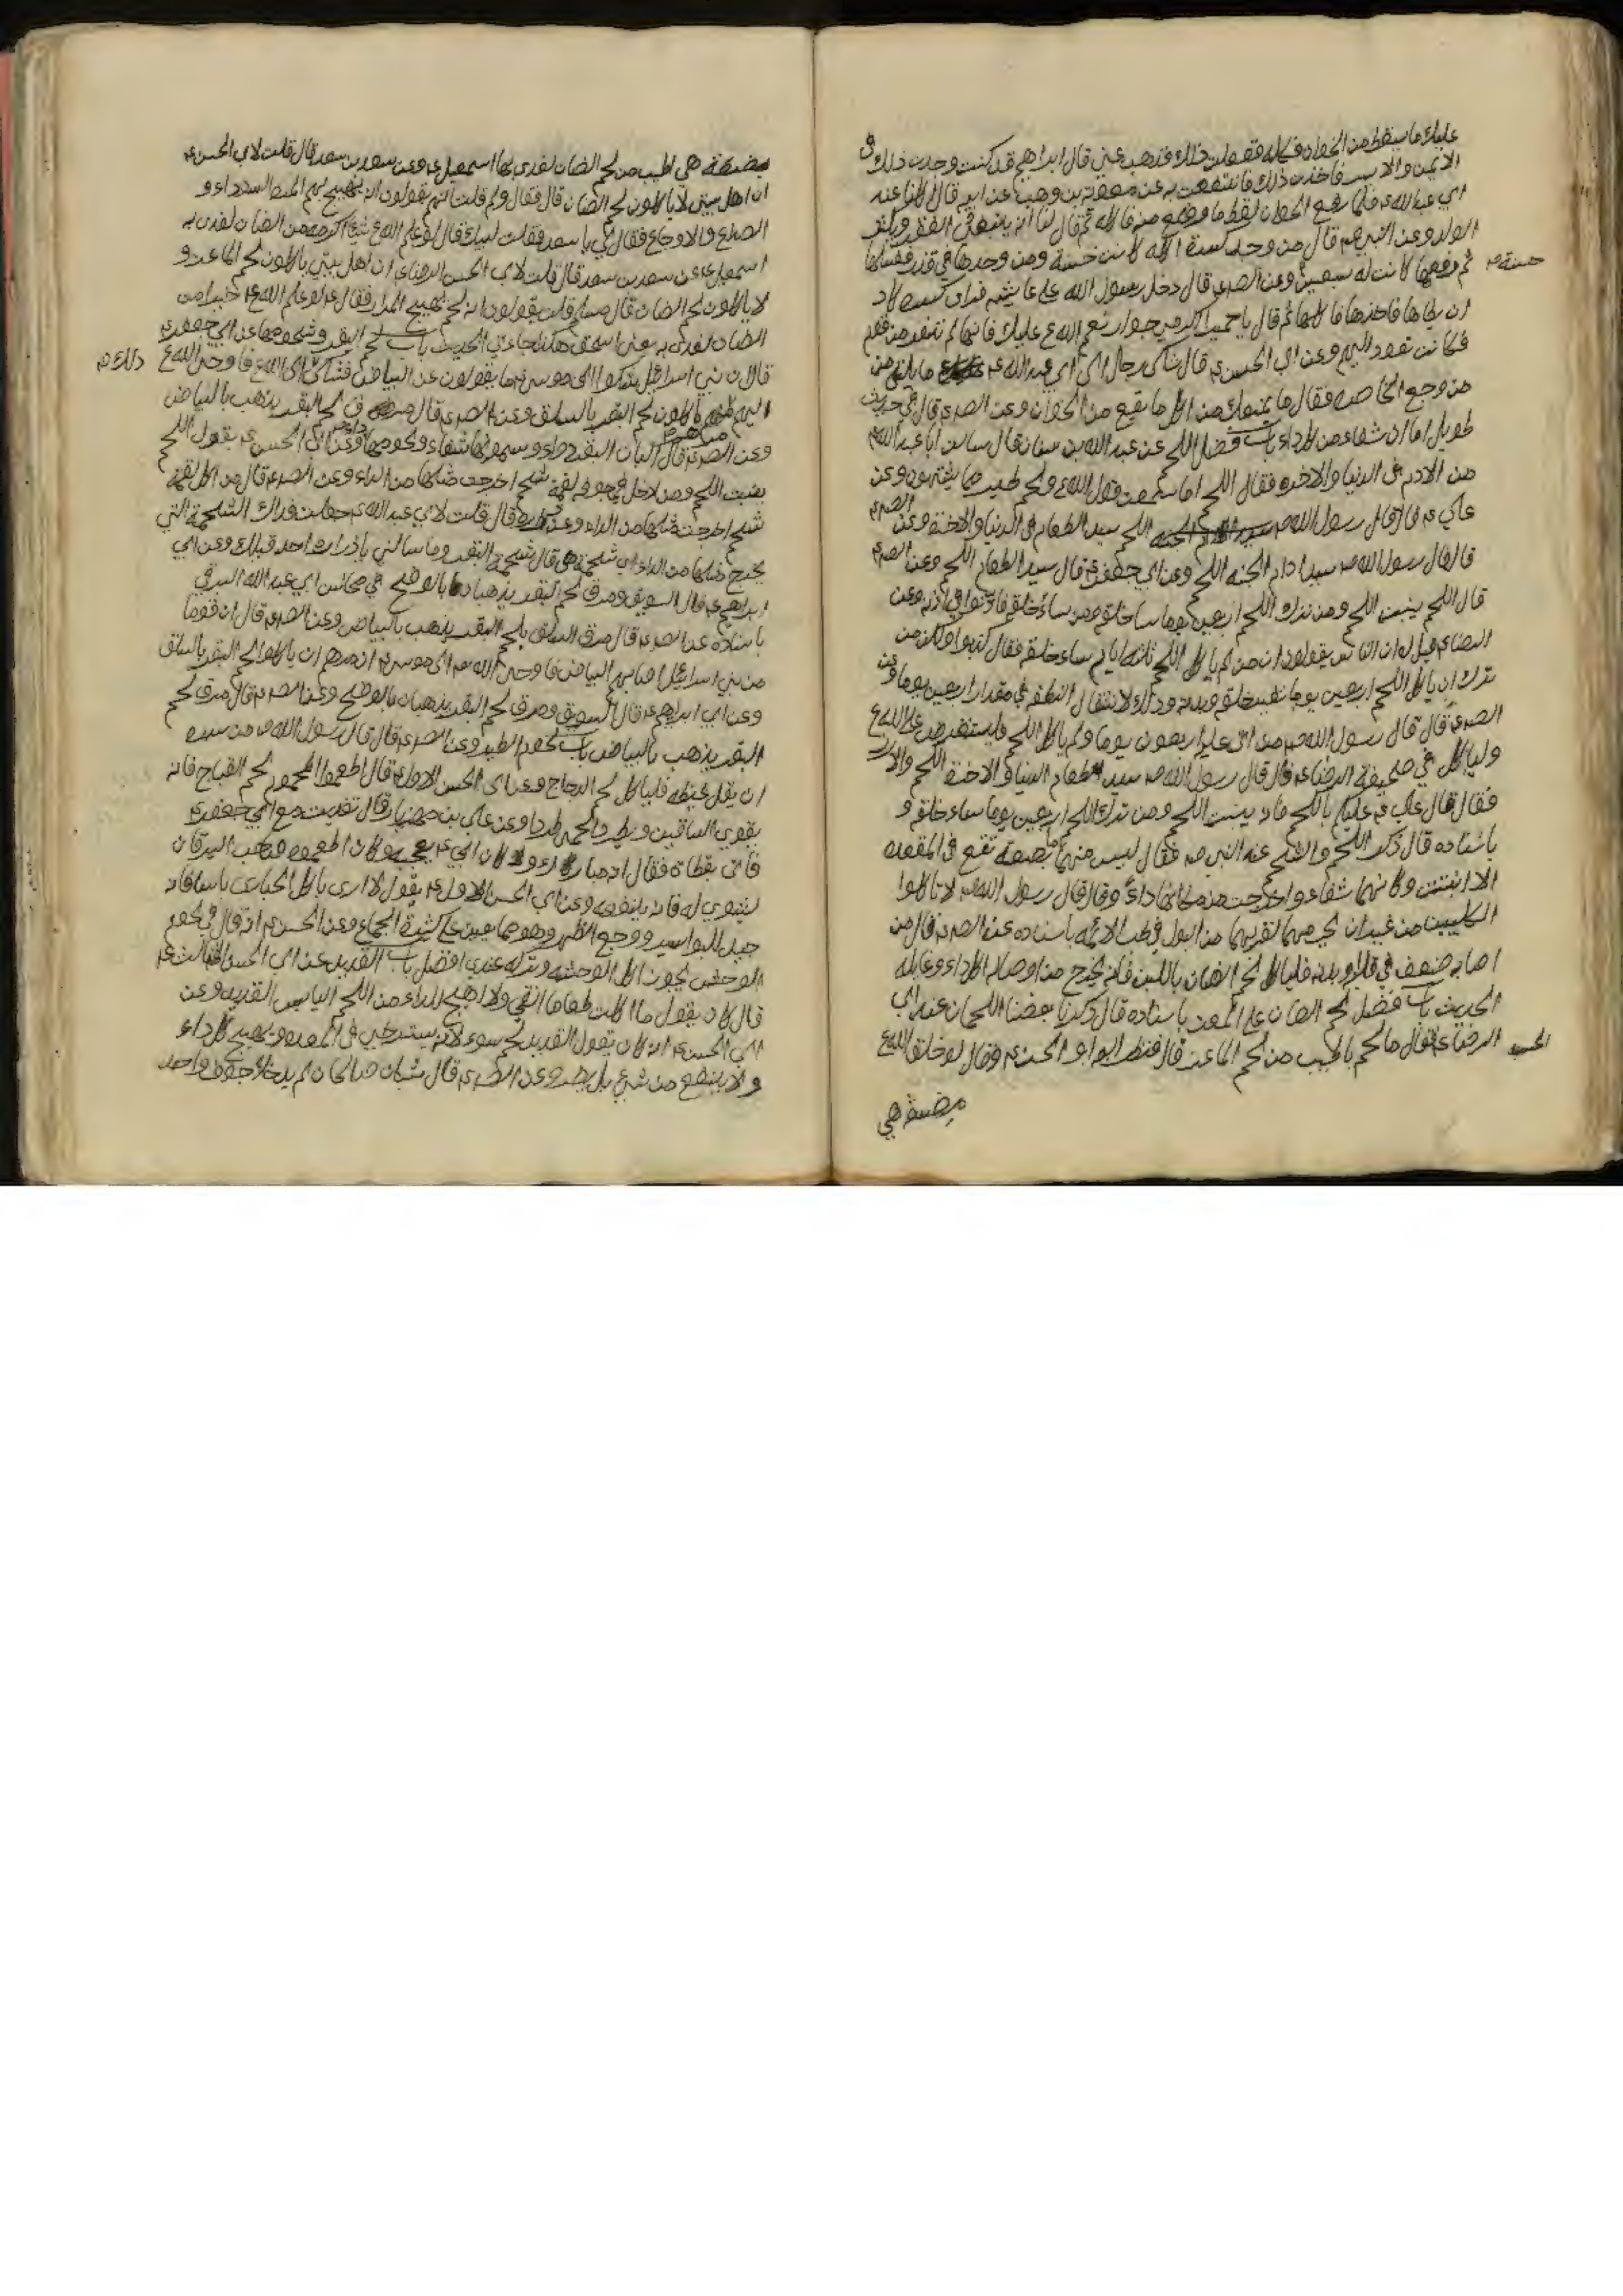 عليك ما يسقط من الخوان فكله ففعلت ذلك فذهب عني قال ابراهيم قد كنت وجدت ذلك في
الايمن والايسر فاخذت ذلك فانتفعت به عن معوية بن وهب عن ابيه قال اكلنا عند
ابي عبدالله ع فلما رفع الخوان لقط ما وقع منه فاكله ثم قال لنا انه ينفي الفقر ويكثر
الولد وعن النبي ص قال من وجد كسرة فاكلها كانت له حسنة ومن وجدها في قذر فغسلها
حسنة
ثم رفعها كانت له سبعين وعن الص ع قال دخل رسول الله على عايشه فراى كسرة كاد
ان يطاها فاخذها فاكلها ثم قال يا حميرا اكرمي جوار نعم الله ع عليك فانها لم تنفر من قوم
فكانت تعود اليهم وعن ابي الحسن ع قال شكى رجل الى ابي عبدالله ع ما يلقى من
من وجع الخاصره فقال ما يمنعك من اكل ما يقع من الخوان وعن الص ع قال في حديث
طويل اما ان شفاء من كل داء باب فضل اللحم عن عبدالله بن سنان قال سالت ابا عبدالله ع
من الادم في الدنيا والاخره فقال اللحم اما سمعت قول الله ع ولحم طير مما يشتهون وعن
علي ع قال قال رسول الله ص اللحم سيد الطعام في الدنيا والاخرة وعن الص ع
قال قال رسول الله ص سيد ادام الجنه اللحم وعن ابي جعفر ع قال سيد الطعام اللحم وعن الص ع
قال اللحم ينبت اللحم ومن ترك اللحم اربعين يوما ساء خلقه ومن ساء خلقه فاذنوا في اذنه وعن
الرضا ع قيل له ان الناس يقولون ان من لم ياكل اللحم ثلثه ايام ساء خلقه فقال كذبوا ولكن من
ترك ان ياكل اللحم اربعين يوما تغير خلقه وبدنه وذلك لانتقال النطفه في مقدار اربعين يوما وعن
الص ع قال قال رسول الله ص من اتى عليه اربعون يوما ولم ياكل اللحم فليستقرض على الله ع
ولياكل في صحيفة الرضا ع قال قال رسول الله ص سيد طعام الدنيا والاخرة اللحم والارز
فقال قال علي ع عليكم باللحم فانه ينبت اللحم ومن ترك اللحم اربعين يوما ساء خلقه و
باسناده قال ذكر اللحم والشحم عند النبي ص فقال ليس منهما بضعة تقع في المعده
الا انبتت مكانها شفاء واخرجت من مكانها داء وقال قال رسول الله ص لا تاكلوا
الكليتين من غير ان يحرمهما لقربهما من البول في طب الائمه باسناده عن الص ع قال من
اصابه ضعف في قلبه او بدنه فلياكل لحم الضان باللبن فانه يخرج من اوصاله كل داء وغايله
الحديث باب فضل لحم الضان على المعز باسناده قال ذكرنا بعضنا اللحمان عند ابي
الحسن
الرضا ع فقال ما لحم باطيب من لحم الماعز قال فنظر اليه ابو الحسن ع وقال لو خلق الله ع
مضغة هي
مضغة هي اطيب من لحم الضان لفدى بها اسمعيل ع وعن سعد بن سعد قال قلت لابي الحسن ع
ان اهل بيتي لا ياكلون لحم الضان قال فقال ولم قلت انهم يقولون انه يهيج بهم المره السوداء و
الصداع والاوجاع فقال لي يا سعد فقلت لبيك قال لو علم الله ع شيئا اكرم من الضان لفدى به
اسمعيل ع عن سعد بن سعد قال قلت لابي الحسن الرضا ع ان اهل بيتي ياكلون لحم الماعز و
لا ياكلون لحم الضان قال ولم قلت يقولون انه لحم يهيج المرار فقال ع لو علم الله ع خيرا من
الضان لفدى به يعني اسحق هكذا جاء في الحديث باب لحم البقر وشحومها عن ابي جعفر ع
قال ان بني اسرائيل شكوا الى موسى ع ما يلقون من البياض فشكى ذلك الى الله ع فاوحى الله ع
ذلك
اليه مرهم ياكلون لحم البقر بالسلق وعن الص ع قال مرق لحم البقر يذهب بالبياض
وعن الص ع قال البان البقر دواء وسمونها شفاء ولحومها داء وعن ابي الحسن ع يقول اللحم
ينبت اللحم ومن ادخل في جوفه لقمة شحم اخرجت مثلها من الداء وعن الص ع قال من اكل لقمة
شحم اخرجت مثلها من الداء وعن زرارة قال قلت لابي عبدالله ع جعلت فداك الشحمة التي
يخرج مثلها من الداء اي شحمة هي قال شحمة البقر وما سالني يا زرارة احد قبلك وعن ابي
ابراهيم ع قال السويق ومرق لحم البقر يذهبان بالوضح في مجالس ابي عبدالله البرقي
باسناده عن الص ع قال مرق السلق بلحم البقر يذهب بالبياض وعن الص ع قال ان قوما
من بني اسرائيل اصابهم البياض فاوحى الله ع الى موسى ع ان مرهم ان ياكلوا لحم البقر بالسلق
وعن ابي ابراهيم ع قال السويق ومرق لحم البقر يذهبان بالوضح وعن الص ع قال مرق لحم
البقر يذهب بالبياض باب لحوم الطير وعن الص ع قال قال رسول الله ص من سره
ان يقل غيظه فلياكل لحم الدراج وعن ابي الحسن الاول ع قال اطعموا المحموم لحم القباج فانه
يقوي الساقين ويطرد الحمى طردا وعن علي بن مهزيار قال تغديت مع ابي جعفر ع
فاتى بقطاة فقال انه مبارك وكان ابي ع يعجبه وكان يقول اطعموه صاحب اليرقان
يشوى له فانه ينفعه وعن ابي الحسن الاول ع يقول لا ارى باكل الحبارى باسا فانه
جيد للبواسير ووجع الظهر وهو مما يعين على كثرة الجماع وعن ابي الحسن ع انه قال في لحوم
الوحش يجوز اكل الوحشيه وتركه عندي افضل باب القديد عن ابي الحسن الثالث ع
قال كان يقول ما اكلت طعاما انقى ولا اهيج للداء من اللحم اليابس القديد وعن
ابي الحسن ع انه كان يقول القديد لحم سوء لانه يسترخي في المعده ويهيج كل داء
ولا ينفع من شيء بل يضره وعن الص ع قال شيئان صالحان لم يدخلا جوف واحد